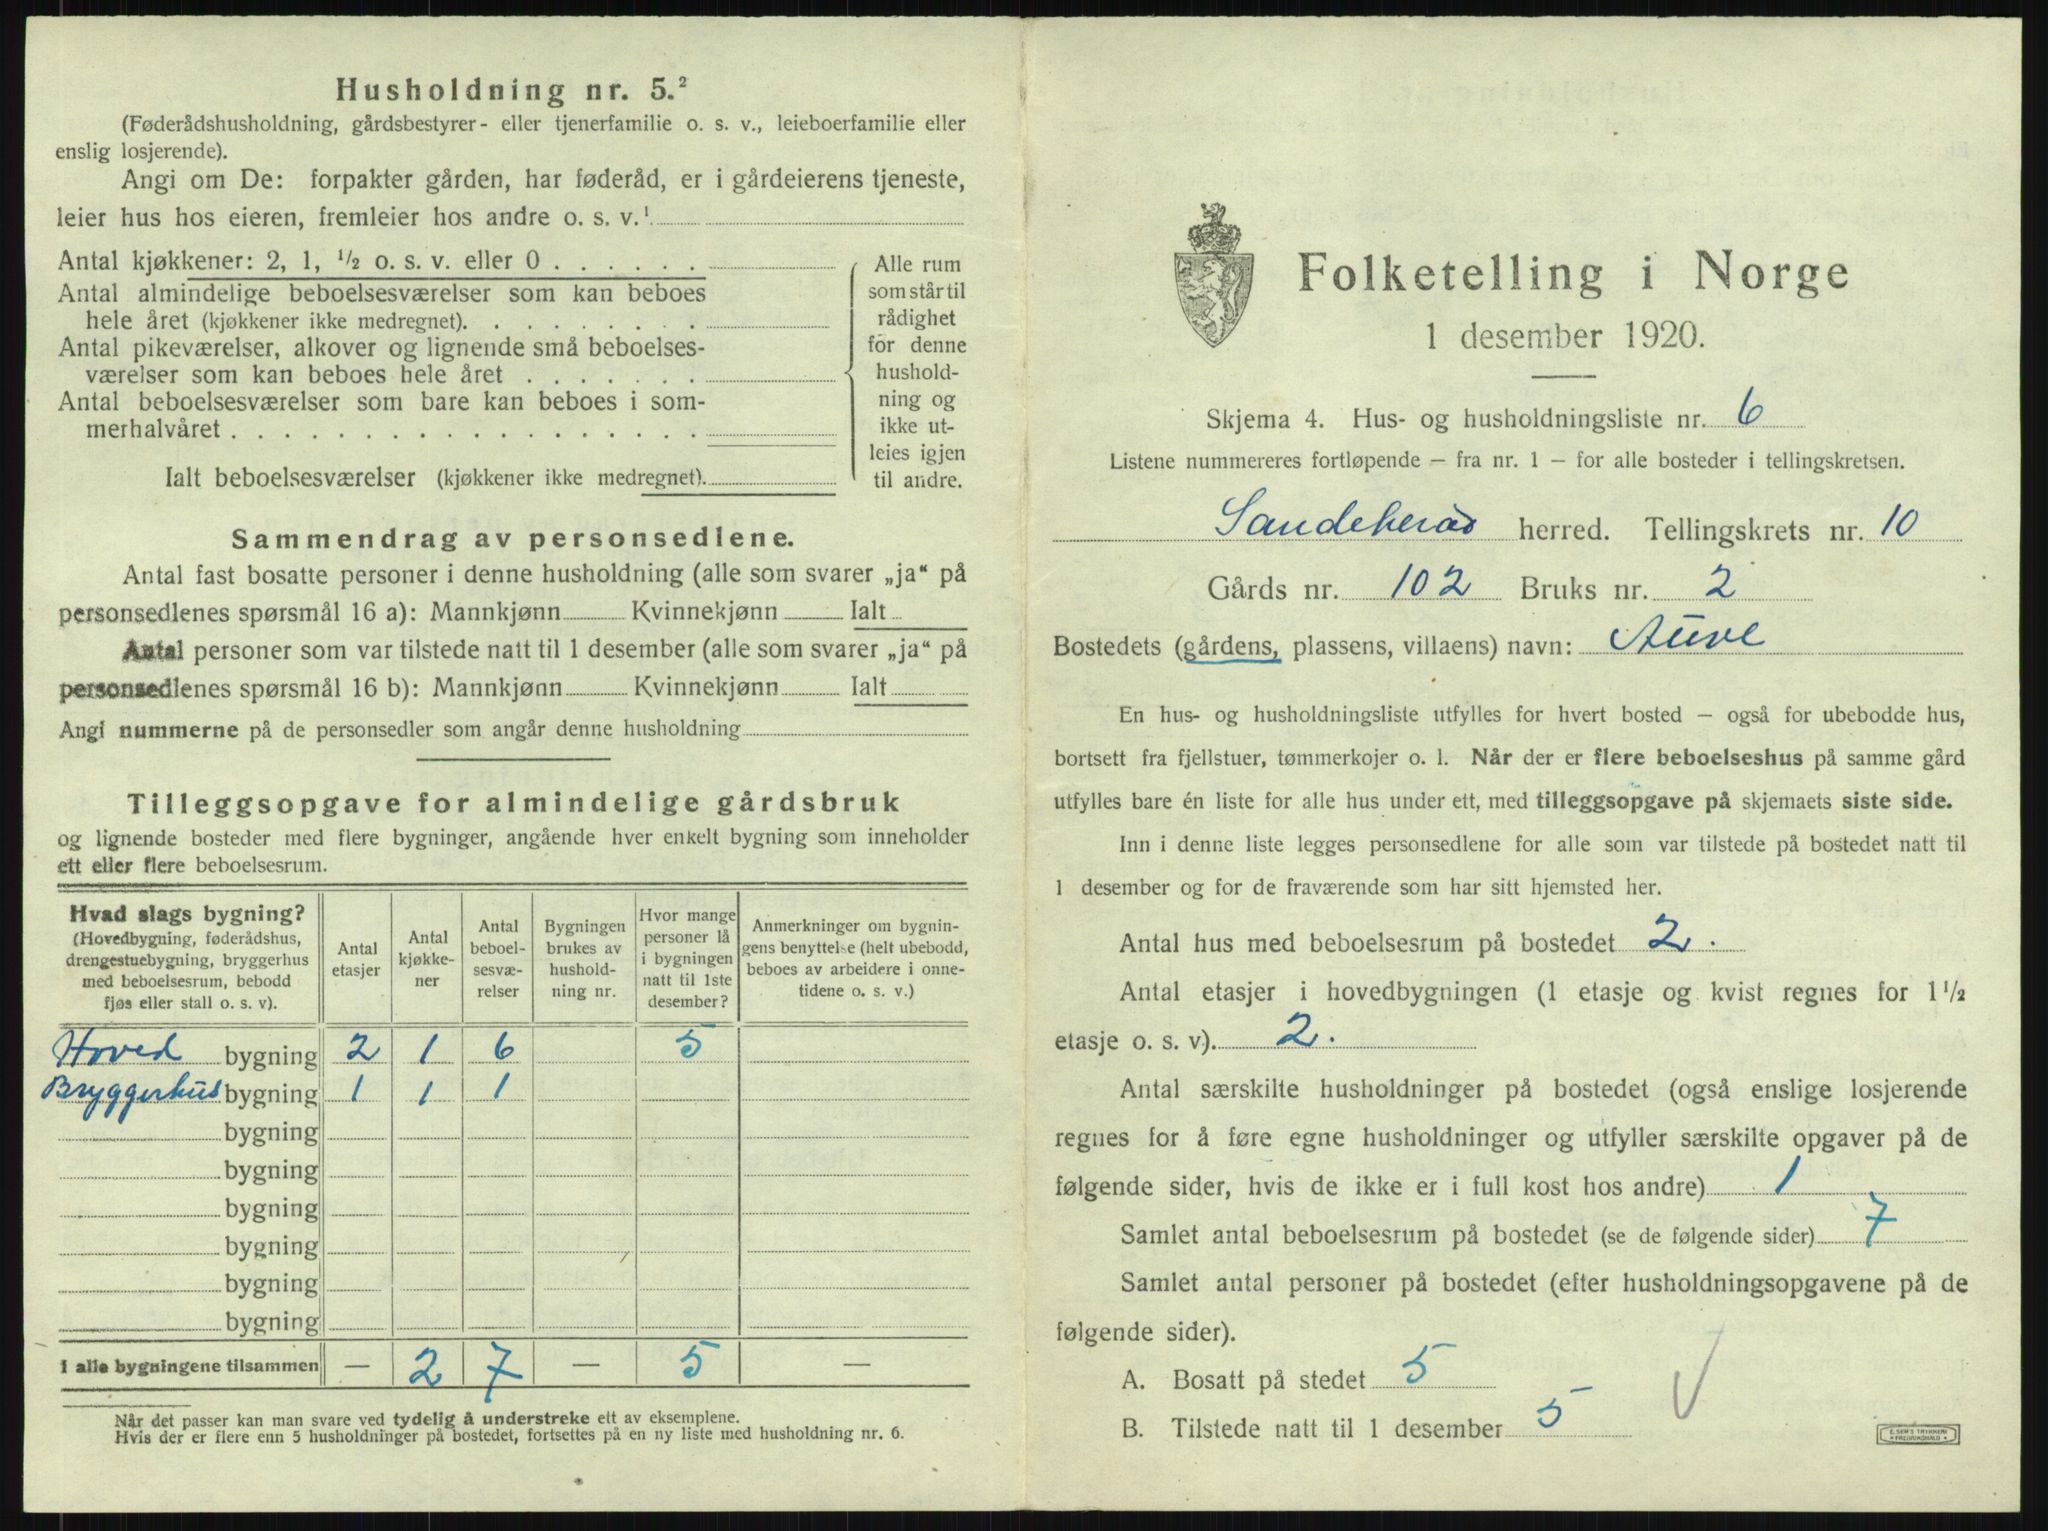 Husholdning nr. 5.²
(Føderådshusholdning, gårdsbestyrer- eller tjenerfamilie o. s. v., leieboerfamilie eller
enslig losjerende).
Angi om De: forpakter gården, har føderåd, er i gårdeierens tjeneste,
leier hus hos eieren, fremleier hos andre o. s. v.¹
Antal kjøkkener: 2, 1, ½ o. s. v. eller 0
Antal almindelige beboelsesværelser som kan beboes
hele året (kjøkkener ikke medregnet).
Antal pikeværelser, alkover og lignende små beboelses-
værelser som kan beboes hele året
Antal beboelsesværelser som bare kan beboes i som-
merhalvåret
Ialt beboelsesværelser (kjøkkener ikke medregnet).
Alle rum
som står til
rådighet
for denne
hushold-
ning og
ikke ut-
leies igjen
til andre.
Sammendrag av personsedlene.
Antal fast bosatte personer i denne husholdning (alle som svarer „ja“ på
personsedlenes spørsmål 16 a): Mannkjønn Kvinnekjønn Ialt
Antal personer som var tilstede natt til 1 desember (alle som svarer „ja“ på
personsedlenes spørsmål 16 b): Mannkjønn Kvinnekjønn Ialt
Angi nummerne på de personsedler som angår denne husholdning
Tilleggsopgave for almindelige gårdsbruk
og lignende bosteder med flere bygninger, angående hver enkelt bygning som inneholder
ett eller flere beboelsesrum.
Hvad slags bygning?
(Hovedbygning, føderådshus,
drengestuebygning, bryggerhus
med beboelsesrum, bebodd
fjøs eller stall o. s. v).
Antal
etasjer
Antal
kjøkke-
ner
Antal
beboel-
sesvæ-
relser
Bygningen
brukes av
hushold-
ning nr.
Hvor mange
personer lå
i bygningen
natt til 1ste
desember?
Anmerkninger om bygnin-
gens benyttelse (helt ubebodd,
beboes av arbeidere i onne-
tidene o. s. v.)
Hoved bygning 2 1 6 5
Bryggerhus bygning 1 1 1
bygning
bygning
bygning
bygning
bygning
bygning
I alle bygningene tilsammen — 2 7 — 5 —
Når det passer kan man svare ved tydelig å understreke ett av eksemplene.
Hvis der er flere enn 5 husholdninger på bostedet, fortsettes på en ny liste med husholdning nr. 6.
Folketelling i Norge
1 desember 1920.
Skjema 4. Hus- og husholdningsliste nr. 6
Listene nummereres fortløpende — fra nr. 1 — for alle bosteder i tellingskretsen.
Sandeherad herred. Tellingskrets nr. 10
Gårds nr. 102 Bruks nr. 2
Bostedets (gårdens, plassens, villaens) navn: Auve
En hus- og husholdningsliste utfylles for hvert bosted — også for ubebodde hus,
bortsett fra fjellstuer, tømmerkojer o. l. Når der er flere beboelseshus på samme gård
utfylles bare én liste for alle hus under ett, med tilleggsopgave på skjemaets siste side.
Inn i denne liste legges personsedlene for alle som var tilstede på bostedet natt til
1 desember og for de fraværende som har sitt hjemsted her.
Antal hus med beboelsesrum på bostedet 2.
Antal etasjer i hovedbygningen (1 etasje og kvist regnes for 1 ½
etasje o. s. v). 2.
Antal særskilte husholdninger på bostedet (også enslige losjerende
regnes for å føre egne husholdninger og utfyller særskilte opgaver på de
følgende sider, hvis de ikke er i full kost hos andre) 1
Samlet antal beboelsesrum på bostedet (se de følgende sider) 7
Samlet antal personer på bostedet (efter husholdningsopgavene på de
følgende sider).
A. Bosatt på stedet 5
B. Tilstede natt til 1 desember 5
E. SEM'S TRYKKERI
FREDRIKSHALD